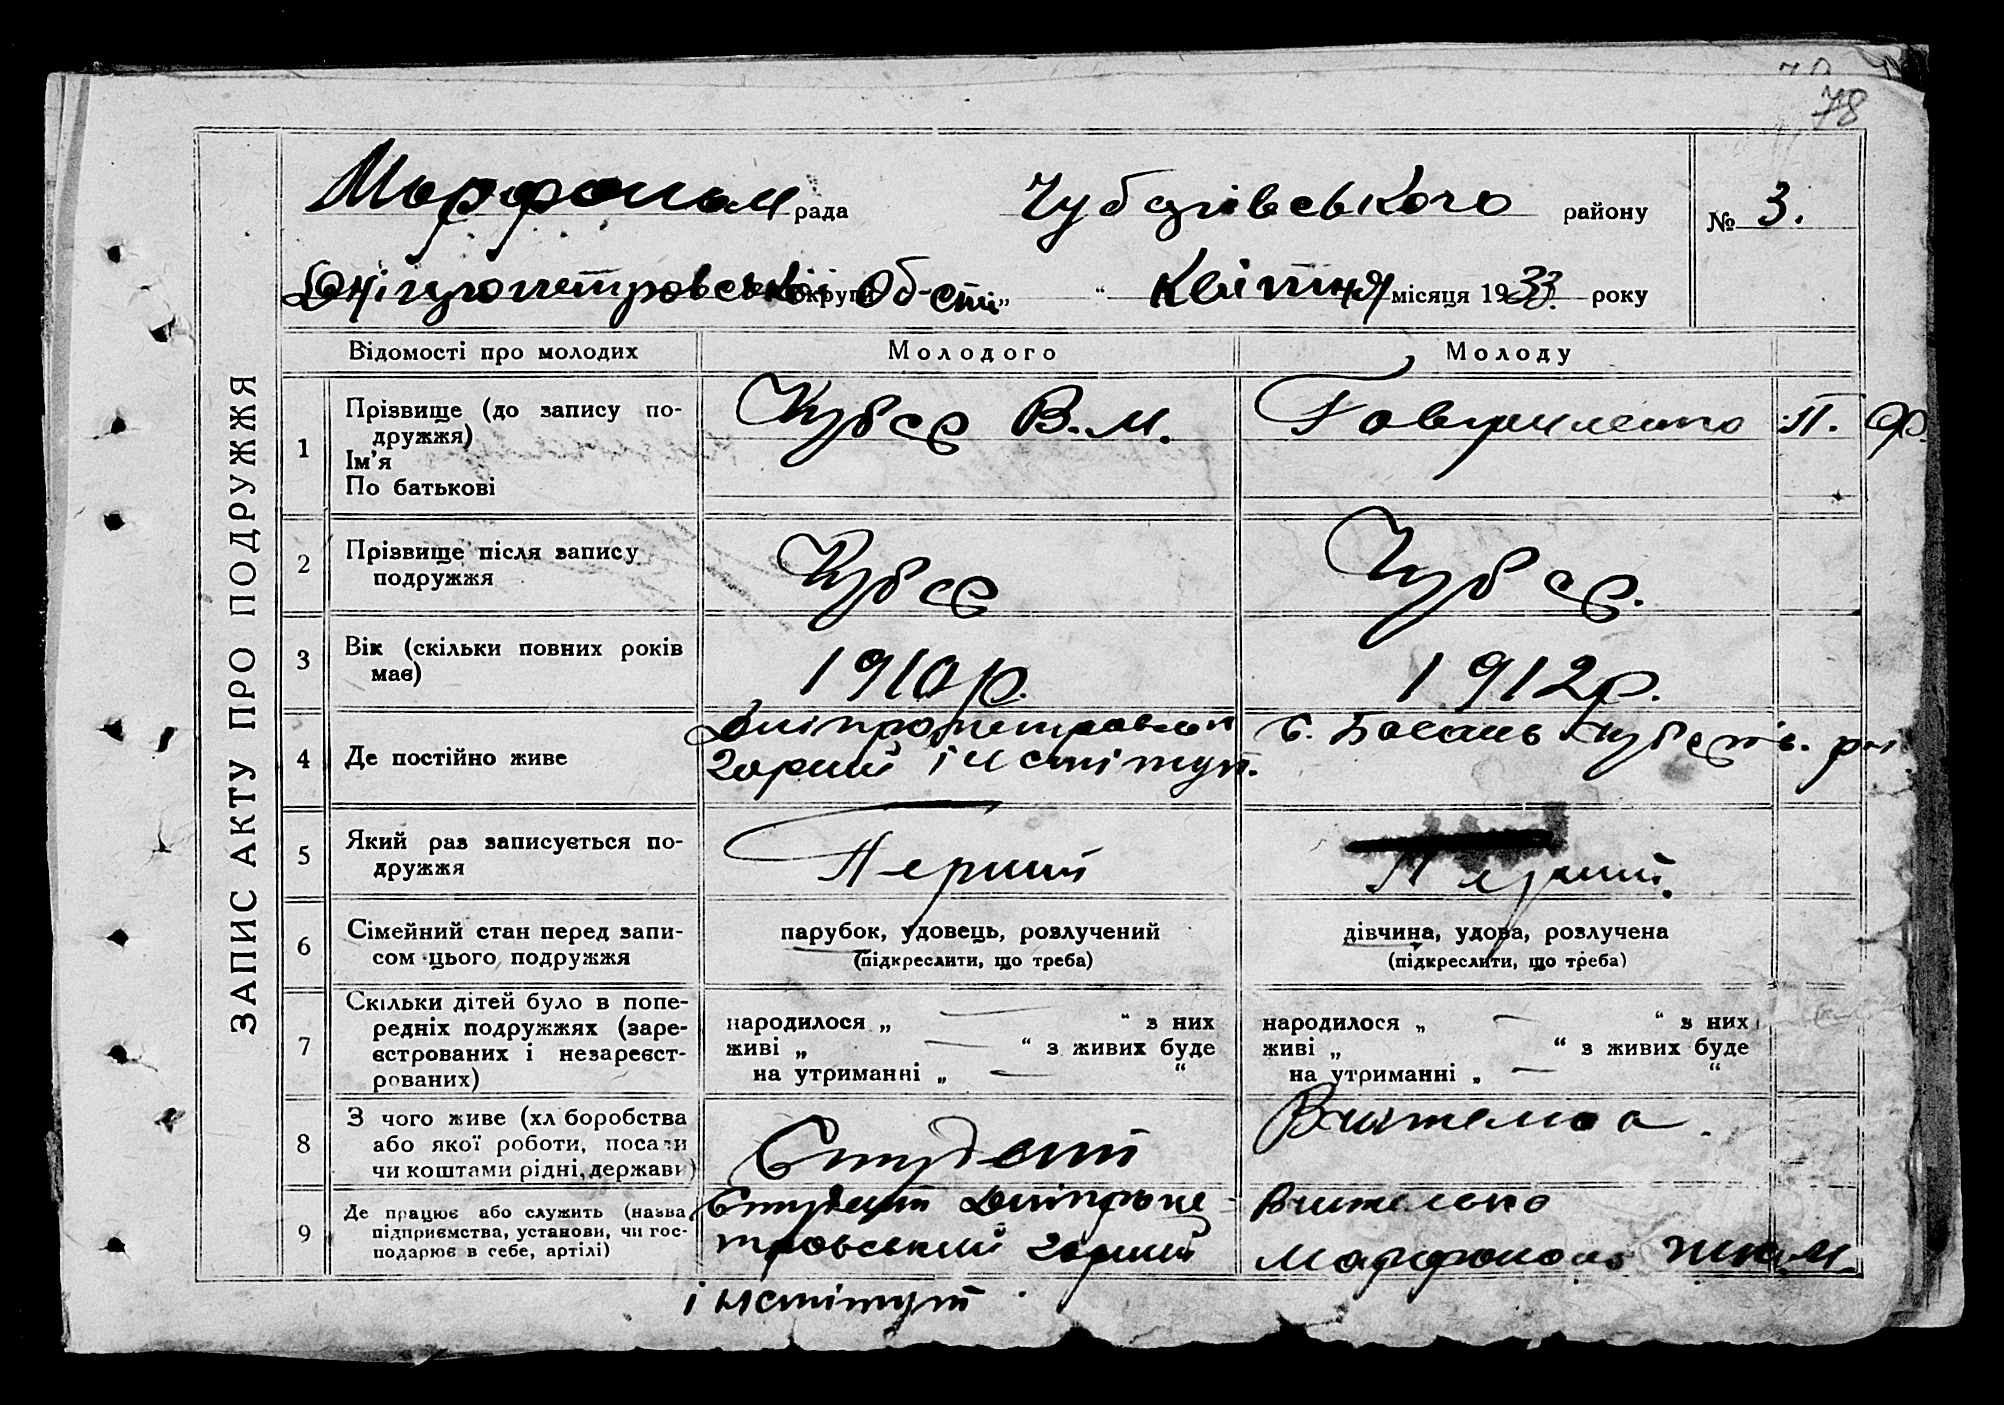 78
ЗАПИС АКТУ ПРО ПОДРУЖЖЯ
Марфопол рада Чубарівського району № 3.
Дніпропетровської округи Об-сті „ “ Квітня місяця 1933 року
Відомості про молодих Молодого Молоду
1 Прізвище (до запису по-
дружжя)
Ім'я
По батькові
Кубєє В. М.
Гавриленко П. Ф.
2 Прізвище після запису
подружжя
3 Вік (скільки повних років
має)
1910 р.
1912 р.
4 Де постійно живе
Дніпропетровськ
горний інститут.
с. Басань Чубарів. р-н
5 Який раз записується по-
дружжя
Перший
Перший.
6 Сімейний стан перед запи-
сом цього подружжя
парубок, удовець, розлучений
(підкреслити, що треба)
дівчина, удова, розлучена
(підкреслити, що треба)
7 Скільки дітей було в попе-
редніх подружжях (заре-
єстрованих і незареєст-
рованих)
народилося „ — “ з них
живі „ — “ з живих буде
на утриманні „ — “
народилося „ — “ з них
живі „ “ з живих буде
на утриманні „ — “
8 З чого живе (хл боробства
або якої роботи, посади
чи коштами рідні, держави)
Студент
Вчителка.
9 Де працює або служить (назва
підприємства, установи, чи гос-
подарює в себе, артілі)
Студент Дніпропе-
тровський горний
інститут.
Вчителько
Марфополь